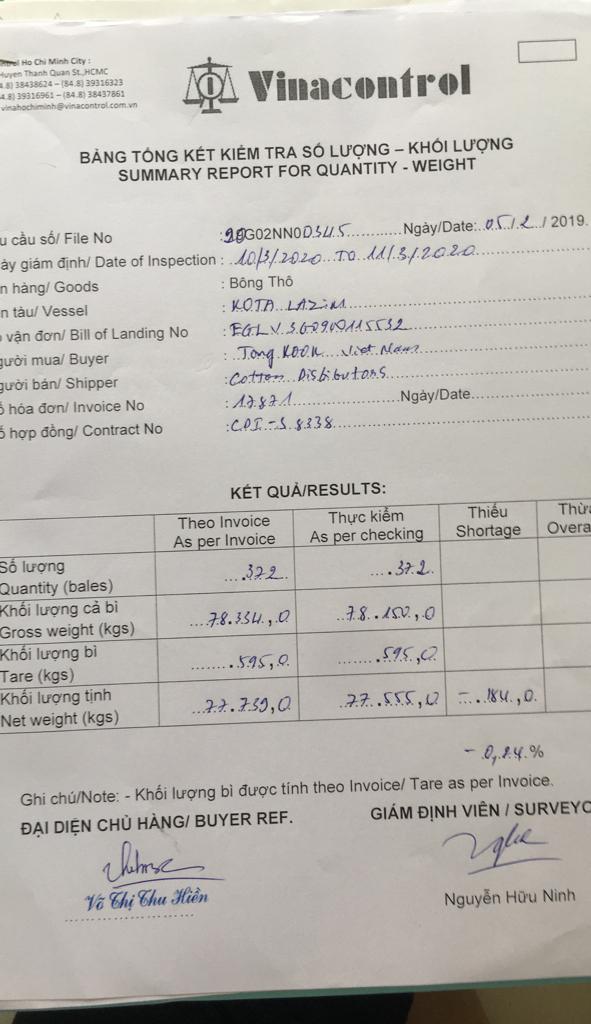 Ho Chi Minh City :
Huyen Thanh Quan St.,HCMC
4.8) 38438624 – (84.8) 39316323
4.8) 39316961 – (84.8) 38437861
vinahochiminh@vinacontrol.com.vn
Vinacontrol
BẢNG TỔNG KẾT KIỂM TRA SỐ LƯỢNG – KHỐI LƯỢNG
SUMMARY REPORT FOR QUANTITY - WEIGHT
u cầu số/ File No : 20G02NN00345 Ngày/Date: 05/2/2019.
ày giám định/ Date of Inspection : 10/3/2020 TO 11/3/2020
n hàng/ Goods : Bông Thô
n tàu/ Vessel : KOTA LAZIM
vận đơn/ Bill of Landing No : EGLV.360900115532
gười mua/ Buyer : Tong KOOK Việt Nam
gười bán/ Shipper : Cotton Distibutors
ố hóa đơn/ Invoice No : 17871 Ngày/Date
ố hợp đồng/ Contract No : CDI-S.8338
KẾT QUẢ/RESULTS:
Theo Invoice
As per Invoice
Thực kiểm
As per checking
Thiếu
Shortage
Thừa
Overa
Số lượng
Quantity (bales)
372
372
Khối lượng cả bì
Gross weight (kgs)
78.334,0
78.150,0
Khối lượng bì
Tare (kgs)
595,0
595,0
Khối lượng tịnh
Net weight (kgs)
77.739,0
77.555,0
- 184,0
- 0,24%
Ghi chú/Note: - Khối lượng bì được tính theo Invoice/ Tare as per Invoice.
ĐẠI DIỆN CHỦ HÀNG/ BUYER REF. GIÁM ĐỊNH VIÊN / SURVEYO
Võ Thị Thu Hiền
Nguyễn Hữu Ninh